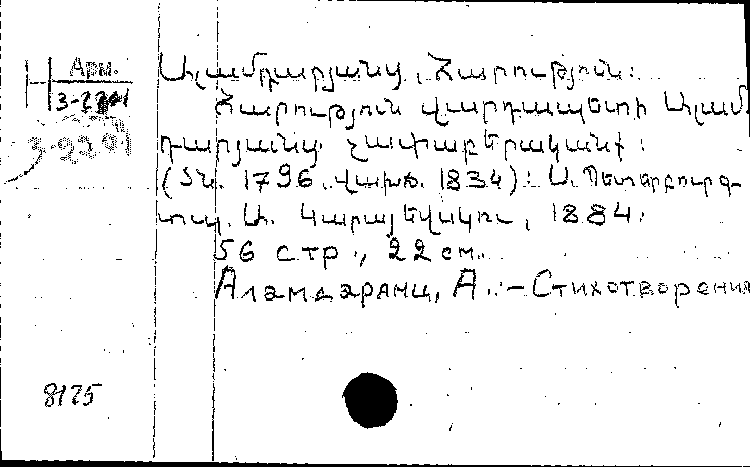 Арм.
3-2201
3-2201
Ալամդարյանց, Հարություն:
Հարություն վարդապետի Ալամ-
դարյանց չափաբերականք:
(Ծն. 1796. վախճ. 1834): Ս. Պետերբուրգ-
տպ. Ա. Կարայեվսկու, 1884:
56 стр., 22 см.
Аламдарянц, А. :- Стихотворения
8125